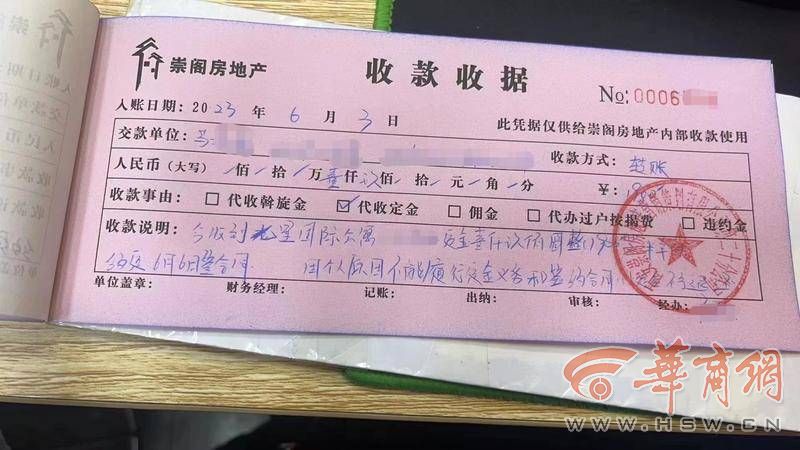 崇阁房地产
收款收据
No: 0006
入账日期: 2023 年 6 月 3 日
此凭据仅供给崇阁房地产内部收款使用
交款单位: 马
收款方式: 转账
人民币(大写) 佰 拾 万 壹仟 贰佰 拾 元 角 分
¥:
收款事由: □ 代收斡旋金 ☑ 代收定金 □ 佣金 □ 代办过户按揭费 □ 违约金
收款说明: 今收到 国际公寓 定金壹仟贰佰圆整
约定6月6日签合同 因个人原因不能履行定金义务和签约合同
单位盖章: 财务经理: 记账: 出纳: 审核: 经办:
華商網
WWW.HSW.CN